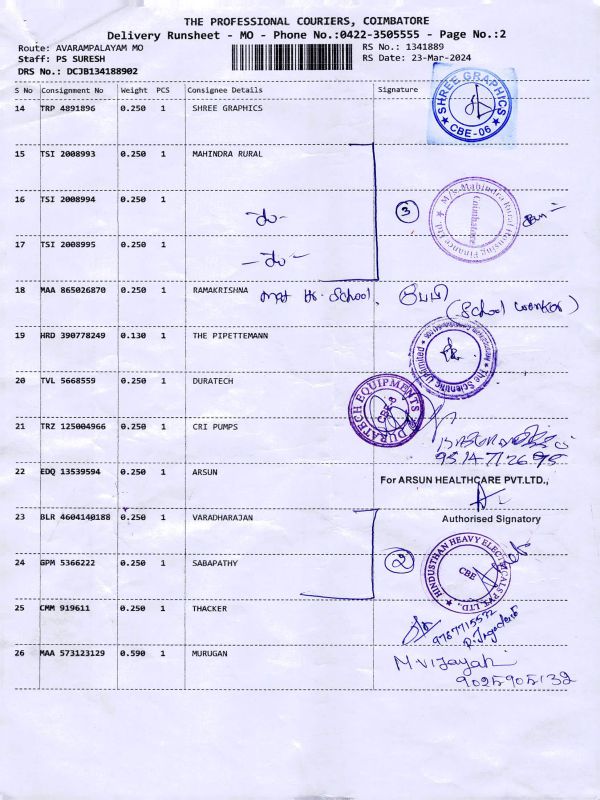 THE PROFESSIONAL COURIERS, COIMBATORE
Delivery Runsheet - MO - Phone No.:0422-3505555 - Page No.:2
Route: AVARAMPALAYAM MO
RS No.: 1341889
Staff: PS SURESH
RS Date: 23-Mar-2024
DRS No.: DCJB134188902
S No Consignment No Weight PCS Consignee Details Signature
14 TRP 4891896 0.250 1 SHREE GRAPHICS
SHREE GRAPHICS
CBE-06
15 TSI 2008993 0.250 1 MAHINDRA RURAL
16 TSI 2008994 0.250 1
-do-
3
M/s. Mahindra Rural Housing Finance Ltd.
Coimbatore
17 TSI 2008995 0.250 1
-do-
18 MAA 865026870 0.250 1 RAMAKRISHNA mat Hr. School,
(School worker)
19 HRD 390778249 0.130 1 THE PIPETTEMANN
The Scientific Unlimited
20 TVL 5668559 0.250 1 DURATECH
DURATECH EQUIPMENTS
CBE-6
21 TRZ 125004966 0.250 1 CRI PUMPS
22 EDQ 13539594 0.250 1 ARSUN
For ARSUN HEALTHCARE PVT.LTD.,
Authorised Signatory
23 BLR 4604140188 0.250 1 VARADHARAJAN
24 GPM 5366222 0.250 1 SABAPATHY
2
HINDUSTHAN HEAVY ELECTRICALS PVT. LTD.,
CBE
25 CMM 919611 0.250 1 THACKER
9787715572
26 MAA 573123129 0.590 1 MURUGAN
M. Vijayah
9025905132